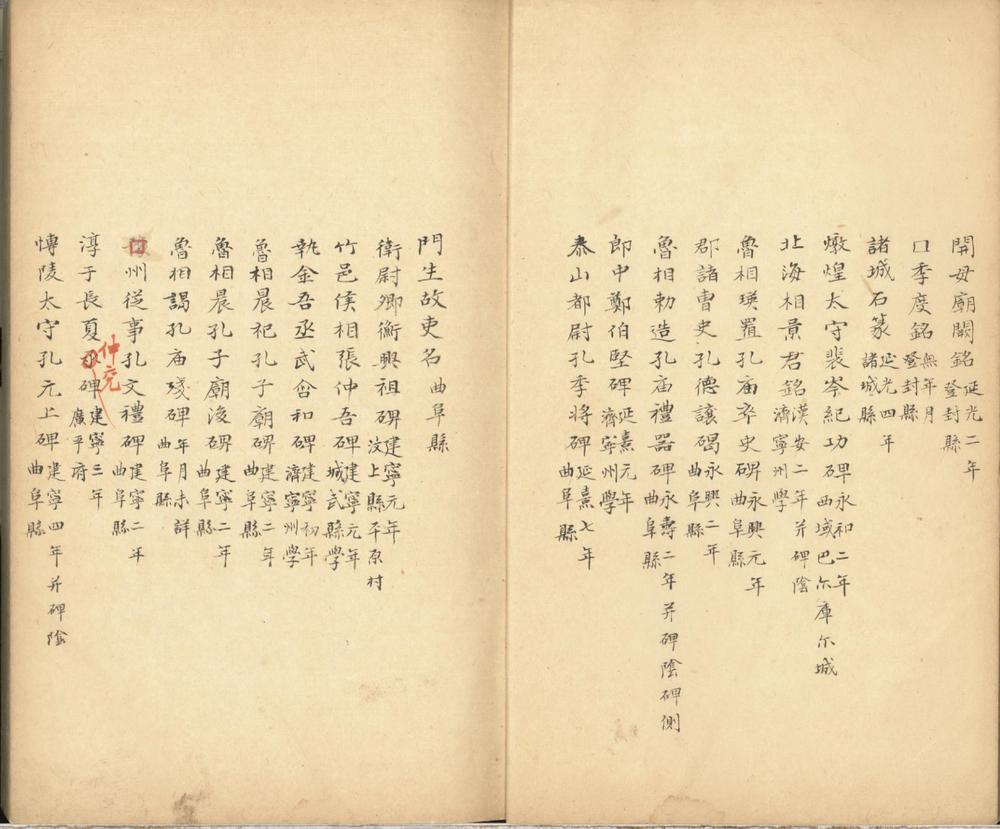 開母廟闕銘延光二年登封縣
口季度銘無年月登封縣
諸城石篆延光四年諸城縣
燉煌太守裴岑紀功碑永和二年西域巴尔庫尔城
北海相景君銘漢安二年并碑陰濟寧州學
魯相瑛置孔庙卒史碑永興元年曲阜縣
郡諸曹史孔德讓碣永興二年曲阜縣
魯相勅造孔庙禮器碑永壽二年并碑陰碑側曲阜縣
郎中鄭伯堅碑延熹元年濟寧州學
泰山都尉孔季將碑延熹七年曲阜縣
門生故吏名曲阜縣
衛尉卿衡興祖碑建寧元年汶上縣平原村
竹邑侯相張仲吾碑建寧元年城武縣學
執金吾丞武含和碑建寧初年濟寧州學
魯相晨祀孔子廟碑建寧二年曲阜縣
魯相晨孔子廟後碑建寧二年曲阜縣
魯相謁孔庙殘碑年月未詳曲阜縣
口州從事孔文禮碑建寧二年曲阜縣
淳于長夏碑建寧三年廣平府
仲兖
博陵太守孔元上碑建寧四年并碑陰曲阜縣